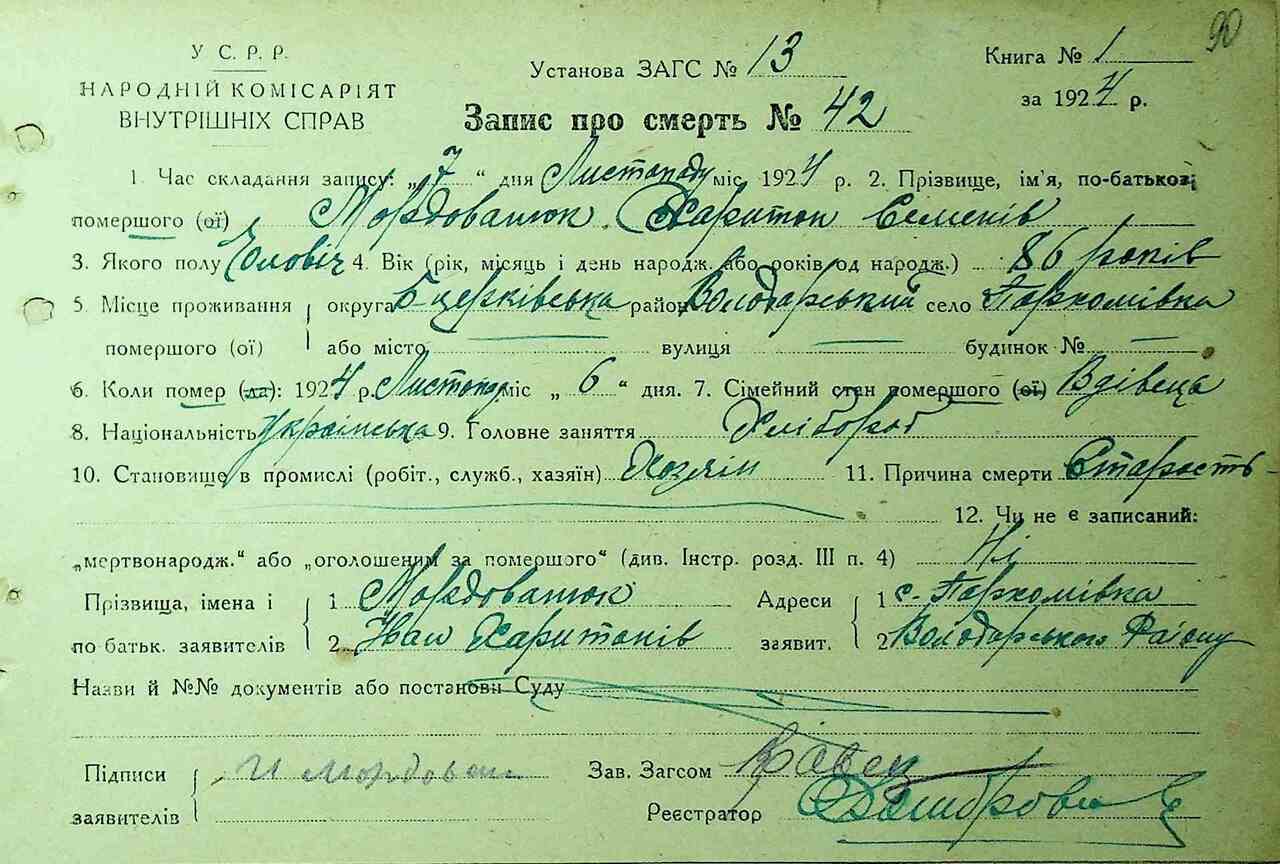 90
У С. Р. Р.
НАРОДНІЙ КОМІСАРІЯТ
ВНУТРІШНІХ СПРАВ
Установа ЗАГС № 13
Книга № 1
за 1924 р.
Запис про смерть № 42
1. Час складання запису: „7“ дня Листопаду міс. 1924 р. 2. Прізвище, ім'я, по-батькові
помершого (ої) Мордованюк Харитон Семенів
3. Якого полу Чоловіч 4. Вік (рік, місяць і день народж. або років од народж.) 86 років
5. Місце проживання округа Б церківська район Володарський село Пархомівка
помершого (ої) або місто вулиця будинок №
6. Коли помер (ла): 1924 р. Листопад міс „6“ дня. 7. Сімейний стан помершого (ої) Вдівець
8. Національність Українська 9. Головне заняття Хлібороб
10. Становище в промислі (робіт., служб., хазяїн) Хозяін 11. Причина смерти Старость
12. Чи не є записаний:
„мертвонародж.“ або „оголошеним за помершого“ (див. Інстр. розд. III п. 4) Ні
Прізвища, імена і 1 Мордованюк Адреси 1 с. Пархомівка
по батьк. заявителів 2 Харитонів заявит. 2 Володарського Району
Назви й №№ документів або постанови Суду
Підписи И Мордован Зав. Загсом Кравец
заявителів Реєстратор